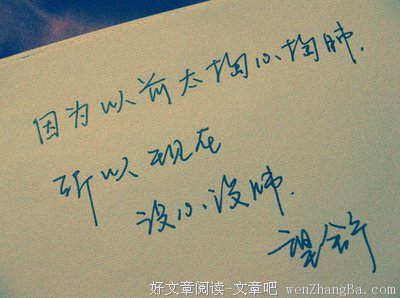 因为以前太掏心掏肺.
所以现在
没心没肺.
望舒
好文章阅读-文章吧 wenZhangBa.com